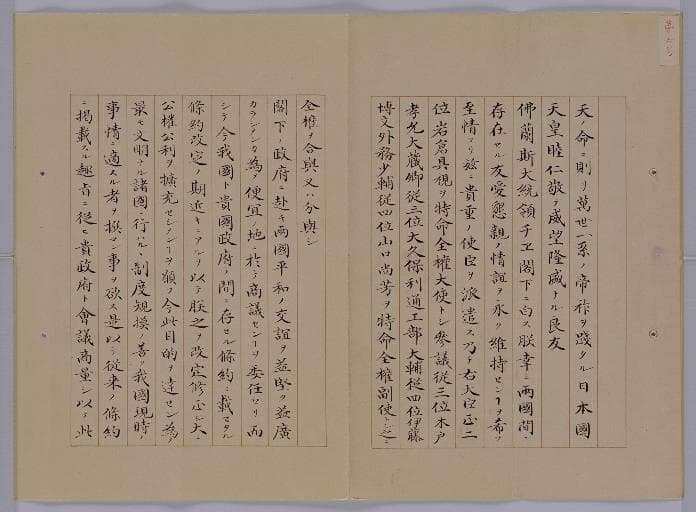 天ノ命ニ則リ萬世一系ノ帝祚ヲ踐タル日本國
天皇睦仁敬テ威望隆盛ナル良友
佛蘭斯大統領チエ閣下ニ白ス朕幸ニ兩國間ニ
存在セル友愛懇親ノ情誼ヲ永ク維持センヿヲ希フ
至情ヨリ茲ニ貴重ノ使臣ヲ派遣ス乃チ右大臣正二
位岩倉具視ヲ特命全權大使トシ參議從三位木戸
孝允大藏卿從三位大久保利通工部大輔從四位伊藤
博文外務少輔從四位山口尚芳ヲ特命全權副使トシ之ニ
全權ヲ合與又ハ分與シ
閣下ノ政府ニ赴キ兩國平和ノ交誼ヲ益堅ク益廣
カラシメンカ為メ便宜ノ地ニ於テ商議センヿヲ委任セリ而
シテ今我國ト貴國政府ノ間ニ存セル條約ニ載セタル
條約改定ノ期近キニアルヲ以テ朕之ヲ改定修正シ大ニ
公權公利ヲ擴充セシメンヿヲ願フ今此目的ヲ達セン為メ
最モ文明ナル諸國ニ行ハルヽ制度規模ノ善ク我國現時ノ
事情ニ適スル者ヲ撰マン事ヲ欲ス是以テ從来ノ條約
ニ掲載スル趣旨ニ從ヒ貴政府ト會議商量シ以テ此